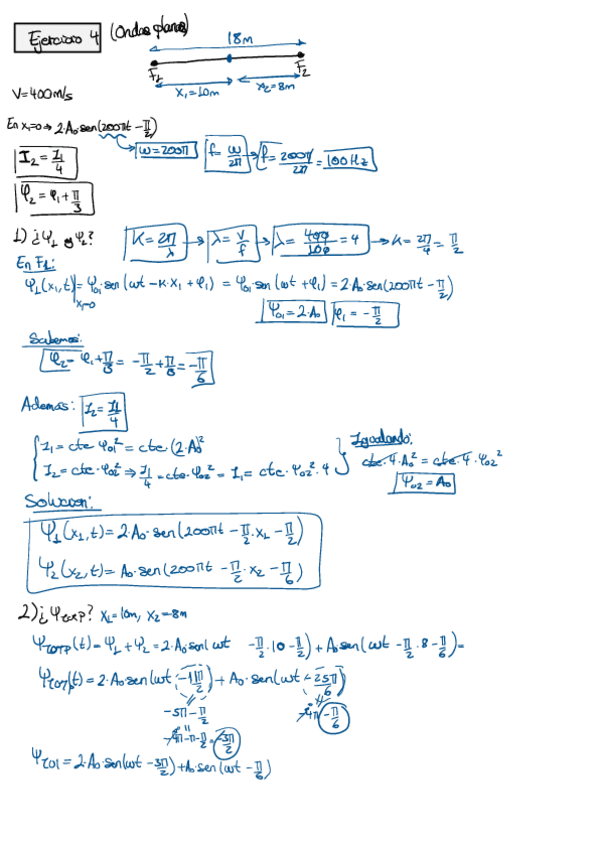 Ejercicio 4 (Ondas planas)
18m
F1 F2
x1=10m x2=8m
V=400m/s
En x1=0 ⇒ 2·A0·sen(200πt - π/2)
ω=200π f=ω/2π → f=200π/2π = 100Hz
I2 = I1/4
φ2 = φ1 + π/3
1) ¿Ψ1 y Ψ2? K=2π/λ → λ=v/f → λ=400/100=4 → K=2π/4=π/2
En F1:
Ψ1(x1,t)|x1=0 = Ψ01·sen(ωt - K·x1 + φ1) = Ψ01·sen(ωt + φ1) = 2·A0·sen(200πt - π/2)
Ψ01=2·A0 φ1=-π/2
Sabemos:
φ2= φ1+π/3 = -π/2+π/3 = -π/6
Ademas: I2=I1/4
I1=cte·Ψ01² = cte·(2·A0)²
I2=cte·Ψ02² ⇒ I1/4 = cte·Ψ02² = I1 = cte·Ψ02²·4
Igualando:
cte·4·A0² = cte·4·Ψ02²
Ψ02=A0
Solucion:
Ψ1(x1,t)=2·A0·sen(200πt - π/2·x1 - π/2)
Ψ2(x2,t)=A0·sen(200πt - π/2·x2 - π/6)
2)¿ΨTOTP? x1=10m, x2=8m
ΨTOTP(t)=Ψ1+Ψ2=2·A0·sen(ωt - π/2·10 - π/2)+A0·sen(ωt - π/2·8 - π/6)=
ΨTOTP(t)=2·A0·sen(ωt - 11π/2)+A0·sen(ωt - 25π/6)
-5π-π/2 -4π-π/6
-4π-π-π/2 = -3π/2
ΨTOT=2·A0·sen(ωt - 3π/2)+A0·sen(ωt - π/6)